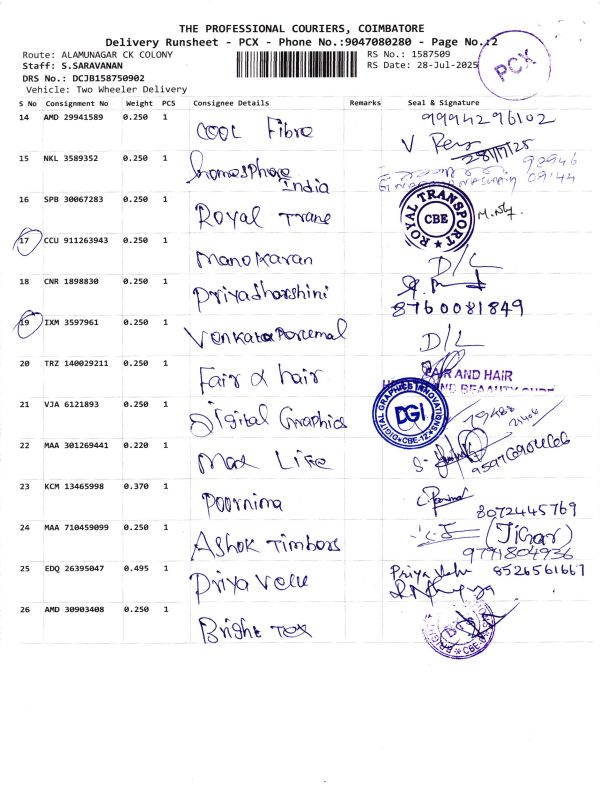 THE PROFESSIONAL COURIERS, COIMBATORE
Delivery Runsheet - PCX - Phone No.:9047080280 - Page No.:2
Route: ALAMUNAGAR CK COLONY
RS No.: 1587509
Staff: S.SARAVANAN
RS Date: 28-Jul-2025
PCX
DRS No.: DCJB158750902
Vehicle: Two Wheeler Delivery
S No Consignment No Weight PCS Consignee Details Remarks Seal & Signature
14 AMD 29941589 0.250 1 COOL Fibre 9994296102
28/7/25
15 NKL 3589352 0.250 1 homosphere India
09:44
16 SPB 30067283 0.250 1 Royal Trans
ROYAL TRANSPORT CBE
17 CCU 911263943 0.250 1 Manokaran D/L
18 CNR 1898830 0.250 1 Priyadharshini
8760081849
19 IXM 3597961 0.250 1 Venkata Perumal D/L
20 TRZ 140029211 0.250 1 Fair & hair
FAIR AND HAIR
21 VJA 6121893 0.250 1 Digital Graphics
DIGITAL GRAPHICS INNOVATIONS DGI CBE-12
22 MAA 301269441 0.220 1 Max Life
23 KCM 13465998 0.370 1 Poornima
8072445769
24 MAA 710459099 0.250 1 Ashok Timbers (Jigar)
9791804936
25 EDQ 26395047 0.495 1 Priya Velu Priya Velu 8526561667
26 AMD 30903408 0.250 1 Bright Tex